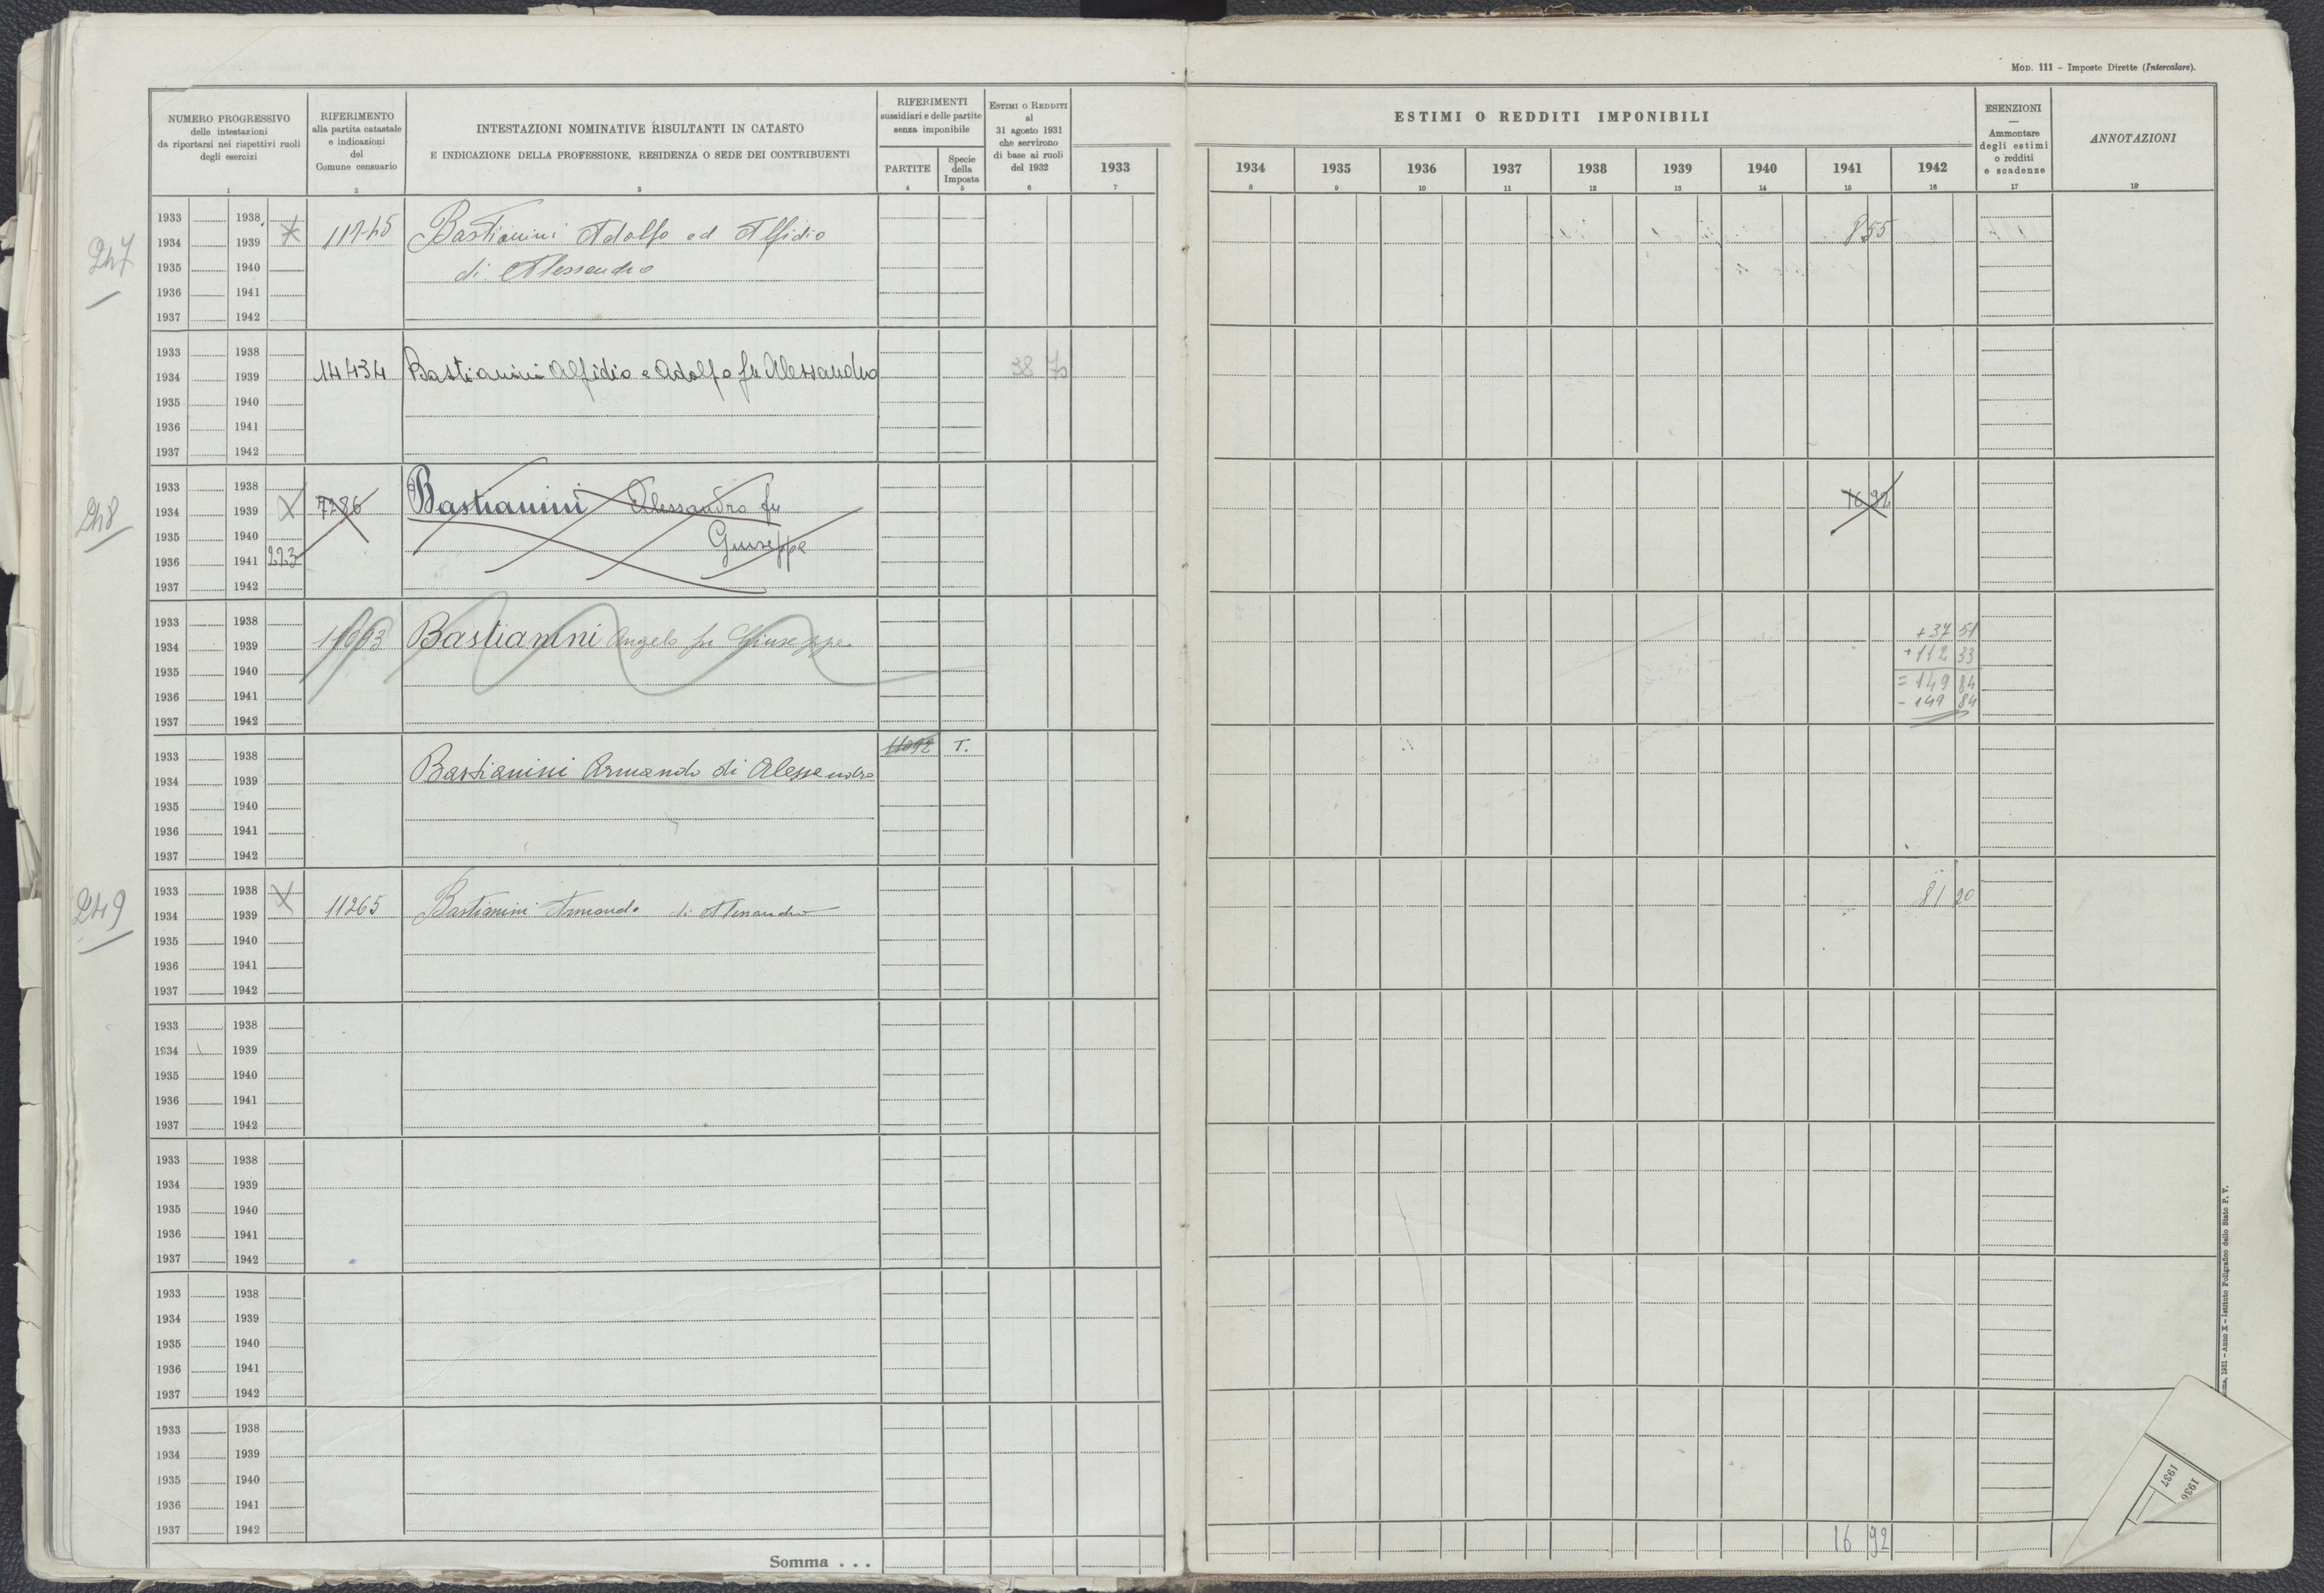 MOD. 111 - Imposte Dirette (Intercalare).
NUMERO PROGRESSIVO
delle intestazioni
da riportarsi nei rispettivi ruoli
degli esercizi
1
RIFERIMENTO
alla partita catastale
e indicazioni
del
Comune censuario
2
INTESTAZIONI NOMINATIVE RISULTANTI IN CATASTO
E INDICAZIONE DELLA PROFESSIONE, RESIDENZA O SEDE DEI CONTRIBUENTI
3
RIFERIMENTI
sussidiari e delle partite
senza imponibile
PARTITE
4
Specie
della
Imposta
5
ESTIMI O REDDITI
al
31 agosto 1931
che servirono
di base ai ruoli
del 1932
6
1933
7
ESTIMI O REDDITI IMPONIBILI
1934 1935 1936 1937 1938 1939 1940 1941 1942
8 9 10 11 12 13 14 15 16
ESENZIONI
—
Ammontare
degli estimi
o redditi
e scadenze
17
ANNOTAZIONI
18
247
1933 1938
1934 1939 Bastianini Adolfo ed Alfidio 8 55
1935 1940 di Alessandro
1936 1941
1937 1942
1933 1938
1934 1939 14434 Bastianini Alfidio e Adolfo fu Alessandro 38 70
1935 1940
1936 1941
1937 1942
248
1933 1938
1934 1939 X 7786 Bastianini Alessandro fu 16 92
1935 1940 Giuseppe
1936 1941 223
1937 1942
1933 1938 + 37 51
1934 1939 11093 Bastianini Angelo fu Giuseppe + 112 33
1935 1940 = 149 84
1936 1941 - 149 84
1937 1942
1933 1938 11092 T.
1934 1939 Bastianini Armando di Alessandro
1935 1940
1936 1941
1937 1942
249
1933 1938 X
1934 1939 11265 Bastianini Armando di Alessandro 81 20
1935 1940
1936 1941
1937 1942
1933 1938
1934 1939
1935 1940
1936 1941
1937 1942
1933 1938
1934 1939
1935 1940
1936 1941
1937 1942
1933 1938
1934 1939
1935 1940
1936 1941
1937 1942
1933 1938
1934 1939
1935 1940
1936 1941
1937 1942
Somma . . . 16 92
1931 - Anno X - Istituto Poligrafico dello Stato P. V.
1936
1937